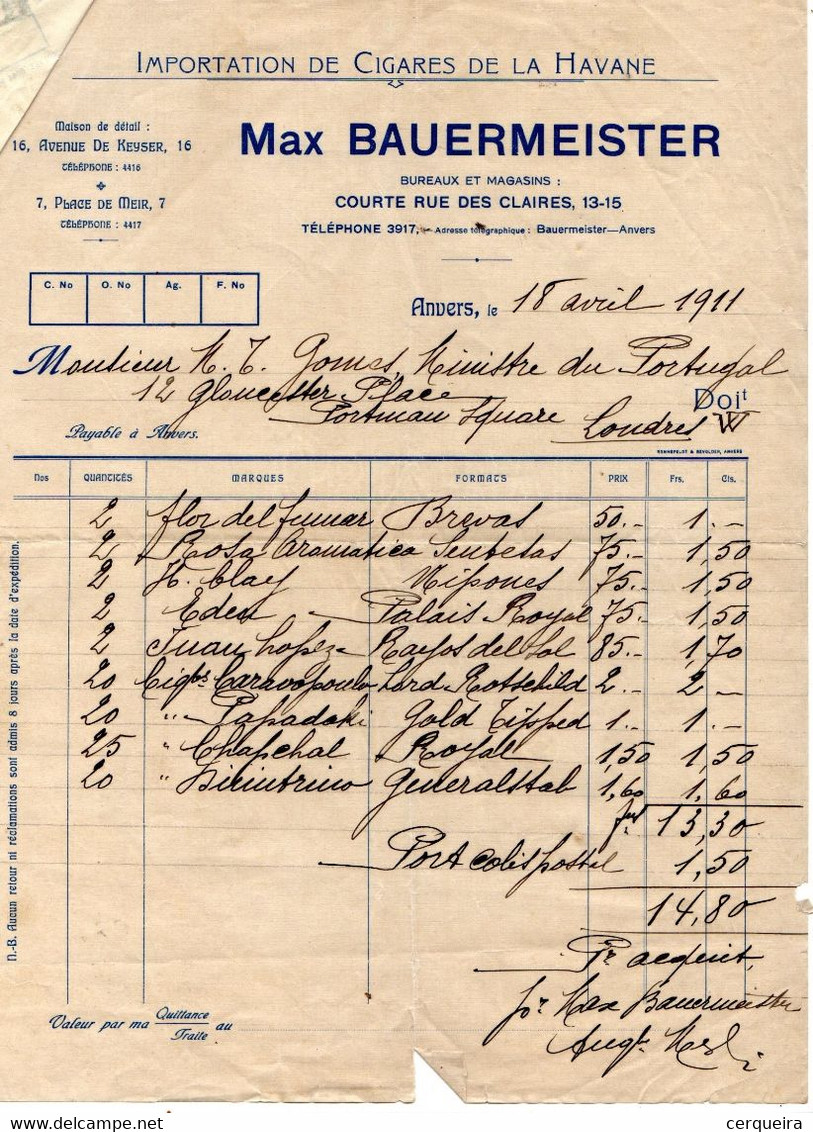 IMPORTATION DE CIGARES DE LA HAVANE
Maison de détail :
16, AVENUE DE KEYSER, 16
TÉLÉPHONE : 4416
7, PLACE DE MEIR, 7
TÉLÉPHONE : 4417
Max BAUERMEISTER
BUREAUX ET MAGASINS :
COURTE RUE DES CLAIRES, 13-15
TÉLÉPHONE 3917, — Adresse télégraphique : Bauermeister—Anvers
C. No O. No Ag. F. No
Anvers, le 18 avril 1911
Monsieur M. T. Gomes, Ministre du Portugal
12 Gloucester Place
Portman Square Londres W
Doit
Payable à Anvers.
KENNEFELDT & DEVOLDER, ANVERS
Nos QUANTITÉS MARQUES FORMATS PRIX Frs. Cts.
2 Flor del fumar Brevas 50.- 1.-
2 Rosa Aromatica 75.- 1,50
2 H. Clay Nipones 75.- 1,50
2 Eden Palais Royal 75.- 1,50
2 Juan Lopez Rayos del Sol 85.- 1,70
20 Cigtes Caravopoulo Lord Rotschild 2.- 2.-
20 " Papadoki Gold Tipped 1.- 1.-
25 " Chapchal Royal 1,50 1,50
20 " Generalstab 1,60 1,60
13,30
Port colis postal 1,50
14,80
Pr acquit,
pr Max Bauermeister
N.-B. Aucun retour ni réclamations sont admis 8 jours après la date d'expédition.
Valeur par ma Quittance
Traite au
delcampe.net
cerqueira